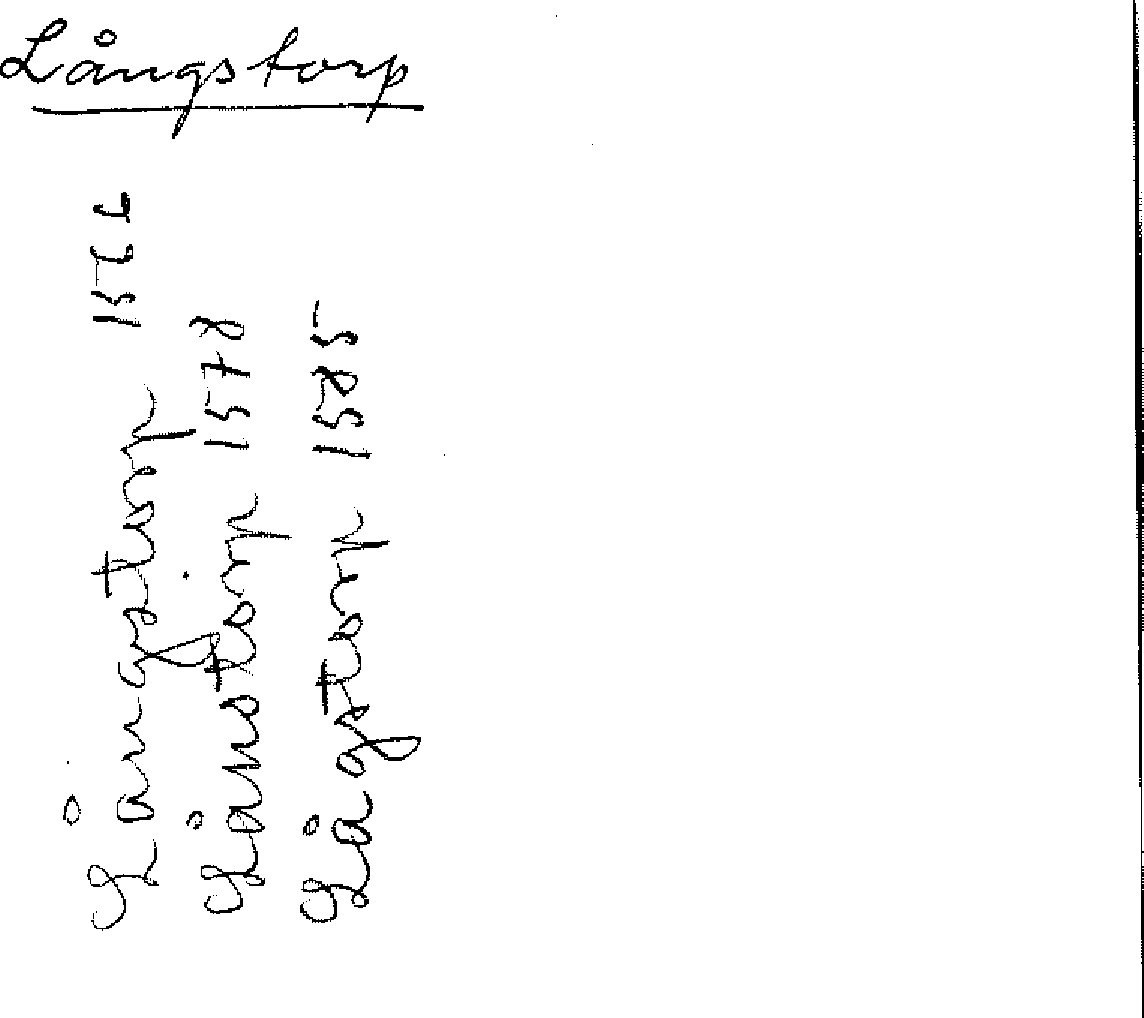 Långstorp
Långstorp
Lånstorp 1578
Lågstorp 1585